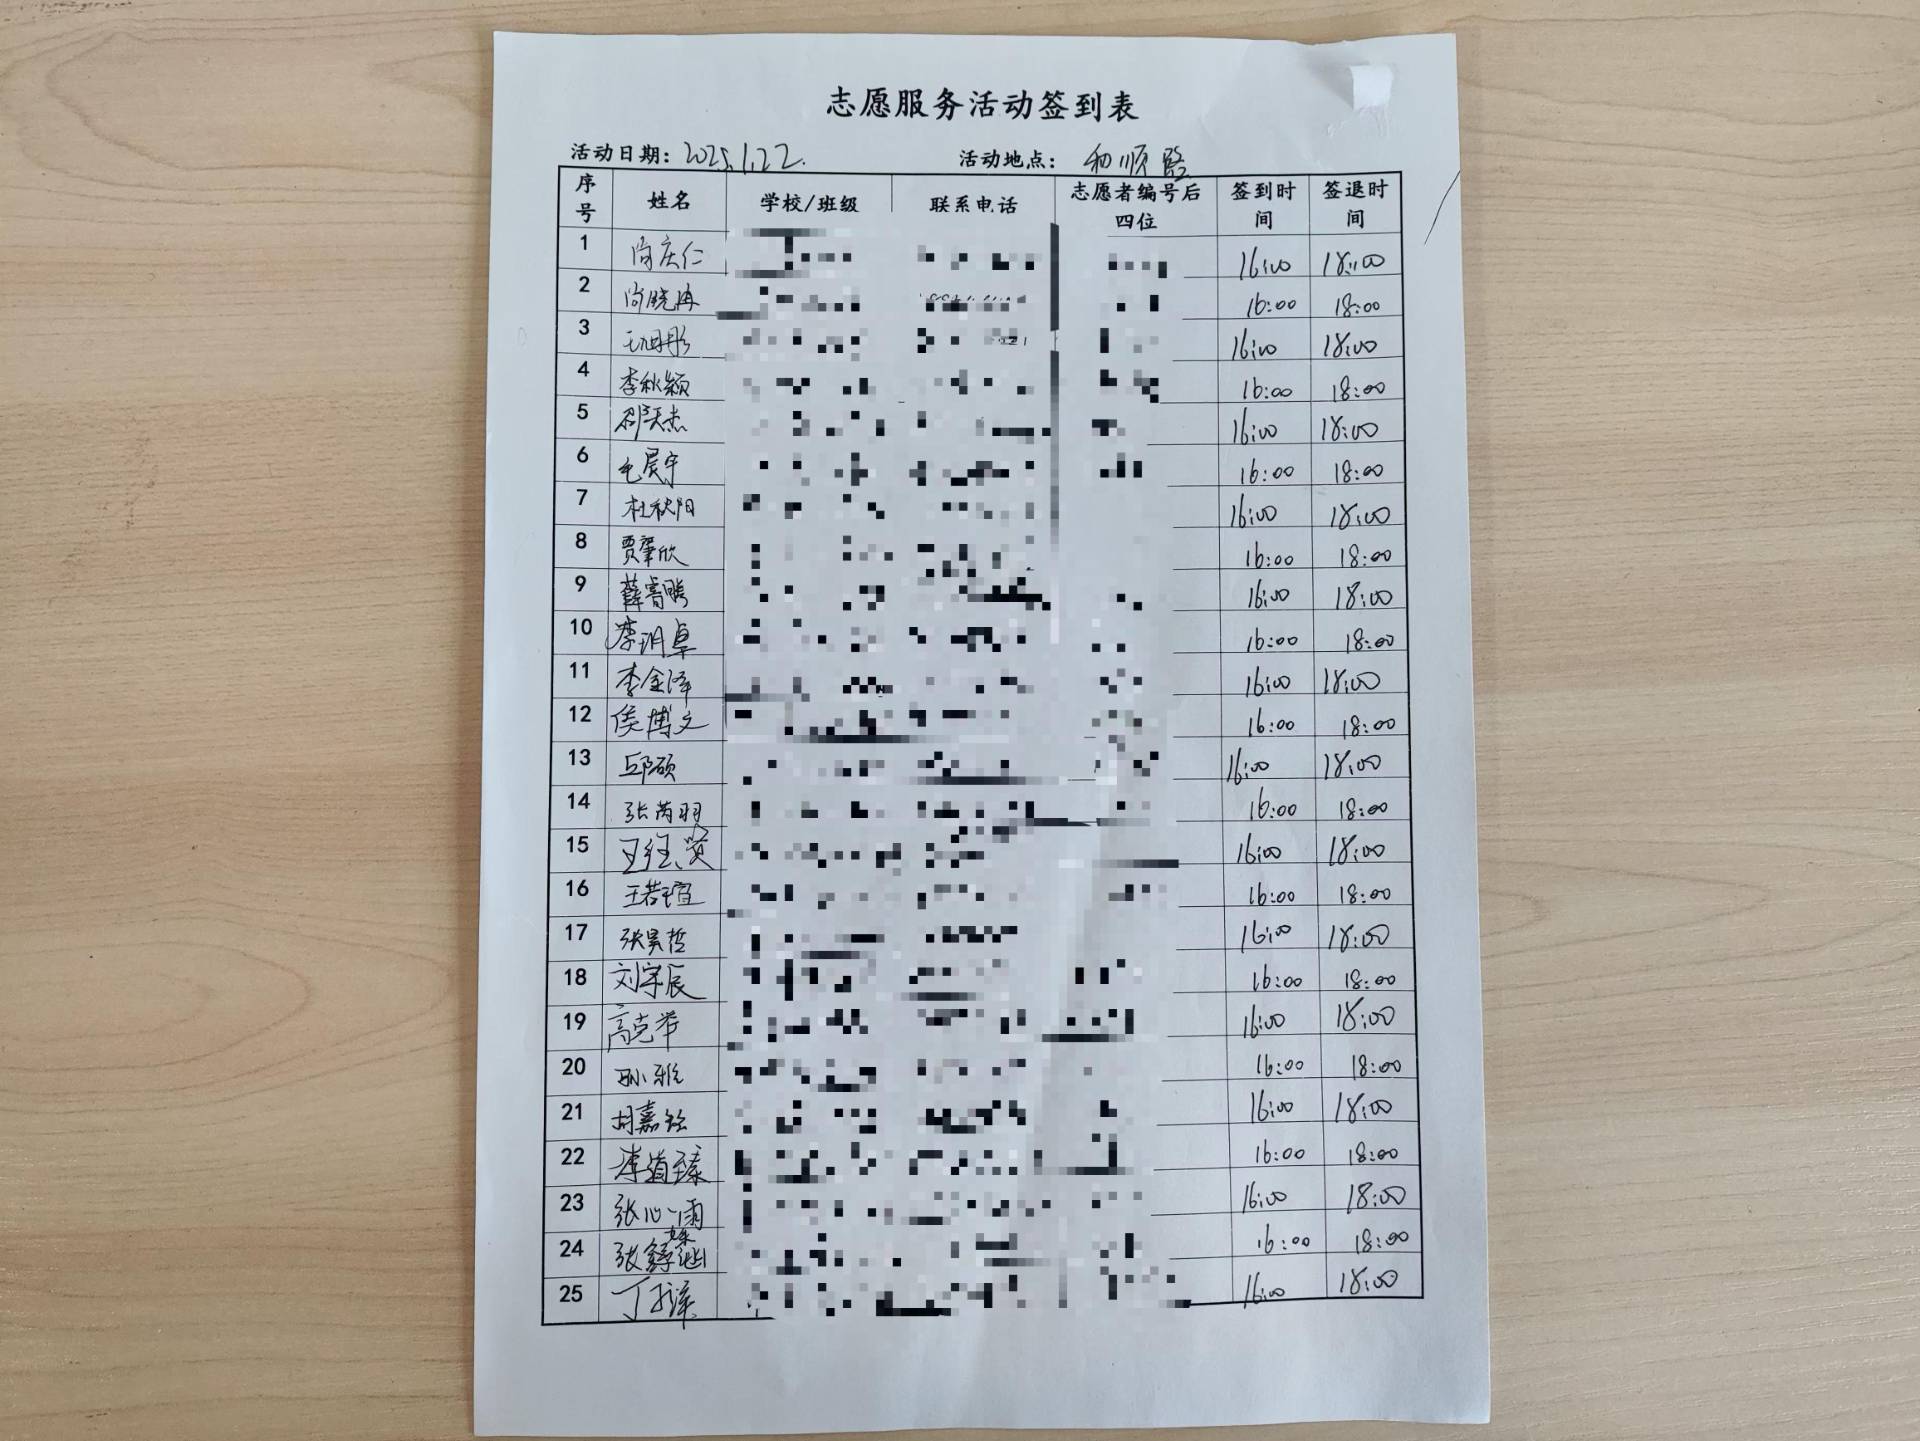 志愿服务活动签到表
活动日期：2025.1.22. 活动地点：和顺
序号 姓名 学校/班级 联系电话 志愿者编号后四位 签到时间 签退时间
1 尚庆仁 16:00 18:00
2 尚晓冉 16:00 18:00
3 16:00 18:00
4 李秋颖 16:00 18:00
5 16:00 18:00
6 毛晨宇 16:00 18:00
7 杜秋阳 16:00 18:00
8 贾肇欣 16:00 18:00
9 薛睿鹏 16:00 18:00
10 李玥卓 16:00 18:00
11 李金泽 16:00 18:00
12 侯博文 16:00 18:00
13 邱硕 16:00 18:00
14 张芮羽 16:00 18:00
15 16:00 18:00
16 王若瑄 16:00 18:00
17 张昊哲 16:00 18:00
18 刘宇辰 16:00 18:00
19 高克举 16:00 18:00
20 孙雅 16:00 18:00
21 胡嘉铭 16:00 18:00
22 李道臻 16:00 18:00
23 张心雨 16:00 18:00
24 16:00 18:00
25 16:00 18:00